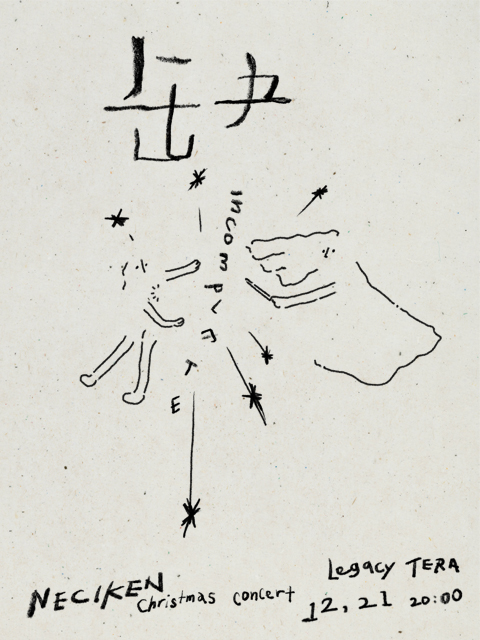 INCOMPLETE
NECIKEN Christmas concert
Legacy TERA
12.21 20:00